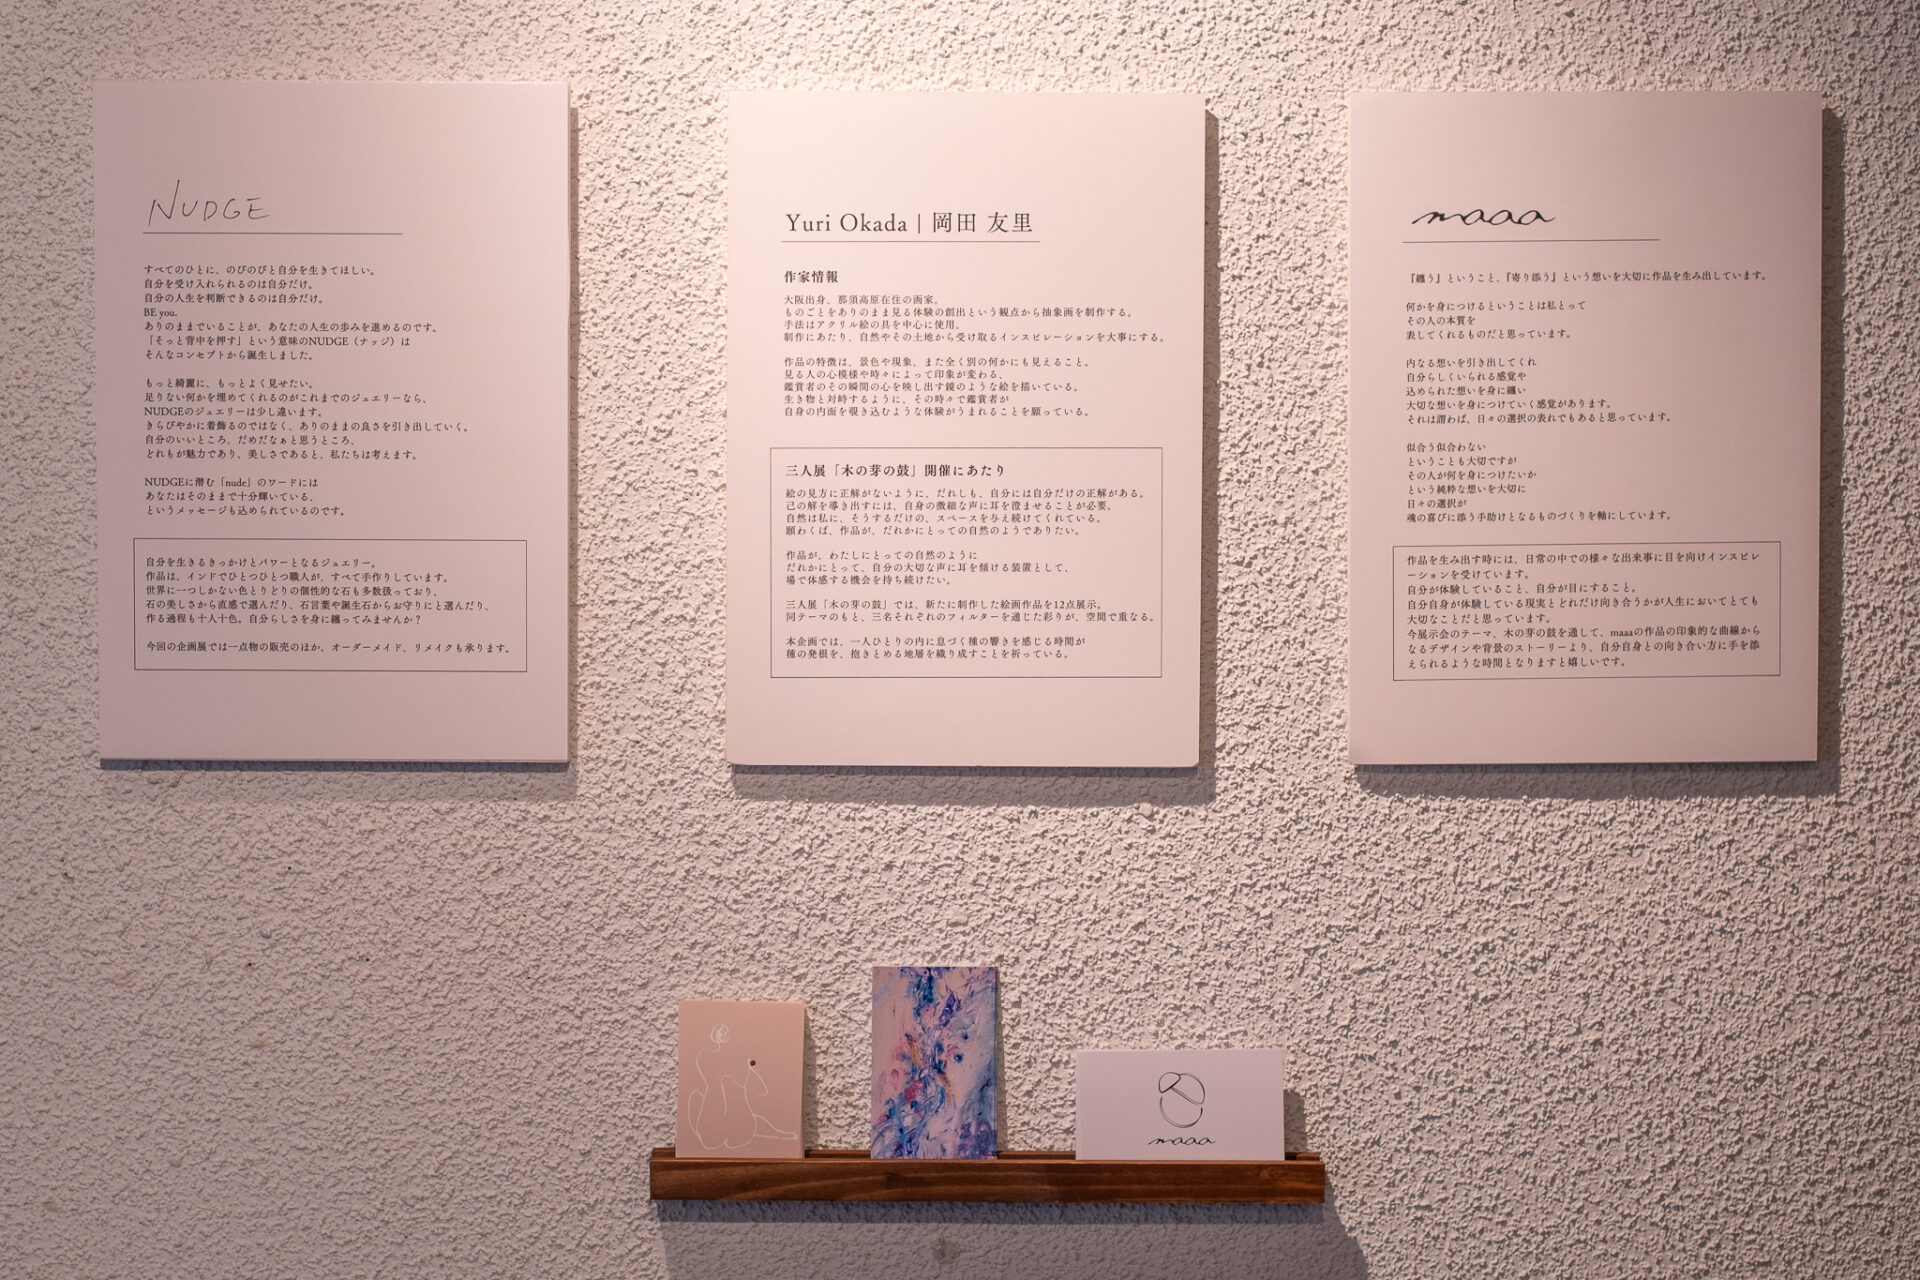 NUDGE
すべてのひとに、のびのびと自分を生きてほしい。
自分を受け入れられるのは自分だけ。
自分の人生を判断できるのは自分だけ。
BE you.
ありのままでいることが、あなたの人生の歩みを進めるのです。
「そっと背中を押す」という意味のNUDGE（ナッジ）は
そんなコンセプトから誕生しました。
もっと綺麗に、もっとよく見せたい。
足りない何かを埋めてくれるのがこれまでのジュエリーなら、
NUDGEのジュエリーは少し違います。
きらびやかに着飾るのではなく、ありのままの良さを引き出していく。
自分のいいところ、だめだなぁと思うところ、
どれもが魅力であり、美しさであると、私たちは考えます。
NUDGEに潜む「nude」のワードには
あなたはそのままで十分輝いている、
というメッセージも込められているのです。
自分を生きるきっかけとパワーとなるジュエリー。
作品は、インドでひとつひとつ職人が、すべて手作りしています。
世界に一つしかない色とりどりの個性的な石も多数扱っており、
石の美しさから直感で選んだり、石言葉や誕生石からお守りにと選んだり、
作る過程も十人十色。自分らしさを身に纏ってみませんか？
今回の企画展では一点物の販売のほか、オーダーメイド、リメイクも承ります。
Yuri Okada | 岡田 友里
作家情報
大阪出身、那須高原在住の画家。
ものごとをありのまま見る体験の創出という観点から抽象画を制作する。
手法はアクリル絵の具を中心に使用。
制作にあたり、自然やその土地から受け取るインスピレーションを大事にする。
作品の特徴は、景色や現象、また全く別の何かにも見えること。
見る人の心模様や時々によって印象が変わる、
鑑賞者のその瞬間の心を映し出す鏡のような絵を描いている。
生き物と対峙するように、その時々で鑑賞者が
自身の内面を覗き込むような体験がうまれることを願っている。
三人展「木の芽の鼓」開催にあたり
絵の見方に正解がないように、だれしも、自分には自分だけの正解がある。
己の解を導き出すには、自身の微細な声に耳を澄ませることが必要。
自然は私に、そうするだけの、スペースを与え続けてくれている。
願わくば、作品が、だれかにとっての自然のようでありたい。
作品が、わたしにとっての自然のように
だれかにとって、自分の大切な声に耳を傾ける装置として、
場で体感する機会を持ち続けたい。
三人展「木の芽の鼓」では、新たに制作した絵画作品を12点展示。
同テーマのもと、三名それぞれのフィルターを通じた彩りが、空間で重なる。
本企画では、一人ひとりの内に息づく種の響きを感じる時間が
種の発根を、抱きとめる地層を織り成すことを祈っている。
maaa
『纏う』ということ、『寄り添う』という想いを大切に作品を生み出しています。
何かを身につけるということは私とって
その人の本質を
表してくれるものだと思っています。
内なる想いを引き出してくれ
自分らしくいられる感覚や
込められた想いを身に纏い
大切な想いを身につけていく感覚があります。
それは謂わば、日々の選択の表れでもあると思っています。
似合う似合わない
ということも大切ですが
その人が何を身につけたいか
という純粋な想いを大切に
日々の選択が
魂の喜びに添う手助けとなるものづくりを軸にしています。
作品を生み出す時には、日常の中での様々な出来事に目を向けインスピレ
ーションを受けています。
自分が体験していること、自分が目にすること。
自分自身が体験している現実とどれだけ向き合うかが人生においてとても
大切なことだと思っています。
今展示会のテーマ、木の芽の鼓を通して、maaaの作品の印象的な曲線から
なるデザインや背景のストーリーより、自分自身との向き合い方に手を添
えられるような時間となりますと嬉しいです。
maaa